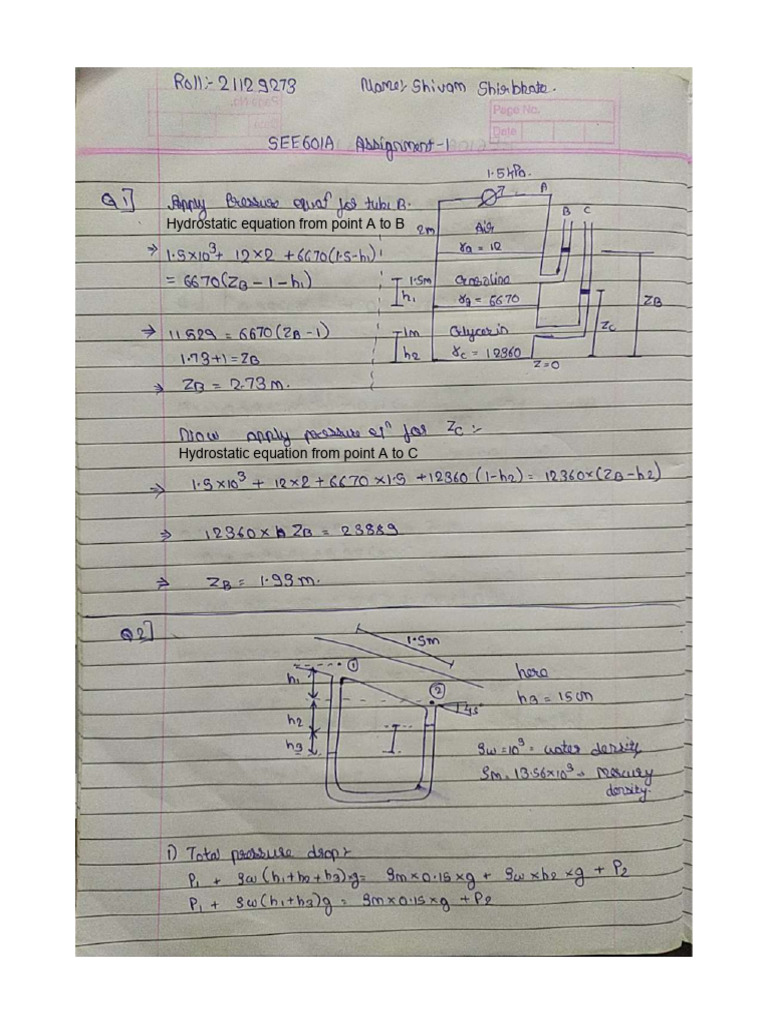 Roll:- 21129273 Name:- Shivam Shirbhate.
Page No.
Date
SEE601A Assignment-1
Q1] Apply Pressure equaⁿ for tube B.
Hydrostatic equation from point A to B
→ 1.5×10³ + 12×2 + 6670(1.5-h₁)
= 6670(ZB - 1 - h₁)
→ 11529 = 6670(ZB - 1)
1.73+1 = ZB
→ ZB = 2.73 m.
1.5 kPa.
A
B C
2m
Air
γa = 12
1.5m
h₁
Gasoline
γg = 6670
ZB
1m
h2
Glycerin
γc = 12360
ZC
Z=0
Now apply pressure eqⁿ for ZC :-
Hydrostatic equation from point A to C
→ 1.5×10³ + 12×2 + 6670×1.5 + 12360 (1-h2) = 12360×(ZB-h2)
⇒ 12360× ZB = 23889
⇒ ZB = 1.93 m.
Q2]
1.5m
①
h₁
②
h2
45°
h3
here
h3 = 15cm
ρw = 10³ = water density
ρm = 13.56×10³ = Mercury
density.
i) Total pressure drop:-
P₁ + ρw(h₁+h2+h3)g = ρm×0.15×g + ρw×h2×g + P2
P₁ + ρw(h₁+h3)g = ρm×0.15×g + P2